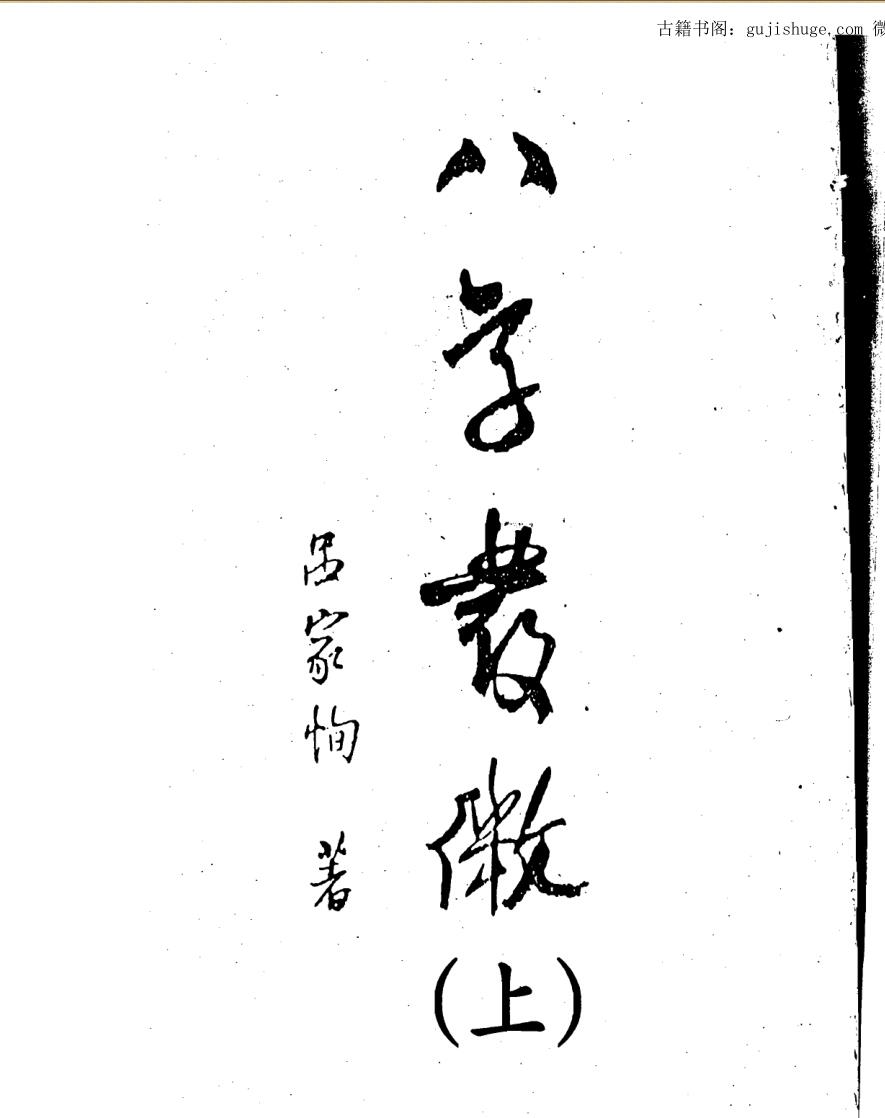 古籍书阁：gujishuge.com 微
八字發微
(上)
呂家恂 著